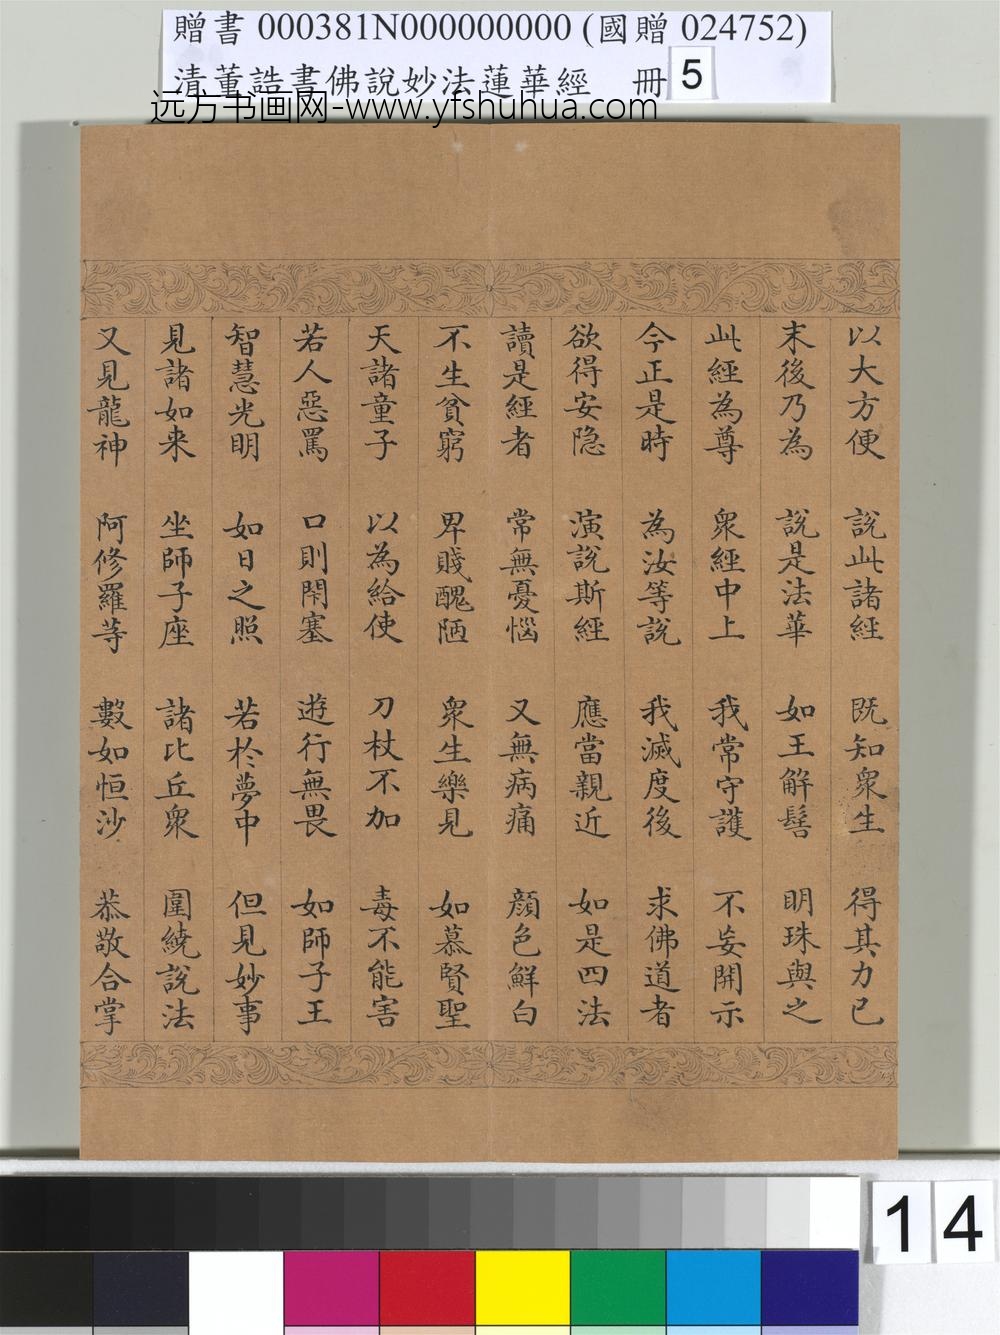 贈書 000381N000000000 (國贈 024752)
清董誥書佛說妙法蓮華經 冊 5
远方书画网-www.yfshuhua.com
以大方便 說此諸經 既知衆生 得其力已
末後乃為 說是法華 如王解髻 明珠與之
此經為尊 衆經中上 我常守護 不妄開示
今正是時 為汝等說 我滅度後 求佛道者
欲得安隐 演說斯經 應當親近 如是四法
讀是經者 常無憂惱 又無病痛 顏色鮮白
不生貧窮 卑賤醜陋 衆生樂見 如慕賢聖
天諸童子 以為給使 刀杖不加 毒不能害
若人惡罵 口則閉塞 遊行無畏 如師子王
智慧光明 如日之照 若於夢中 但見妙事
見諸如来 坐師子座 諸比丘衆 圍繞說法
又見龍神 阿修羅等 數如恒沙 恭敬合掌
14